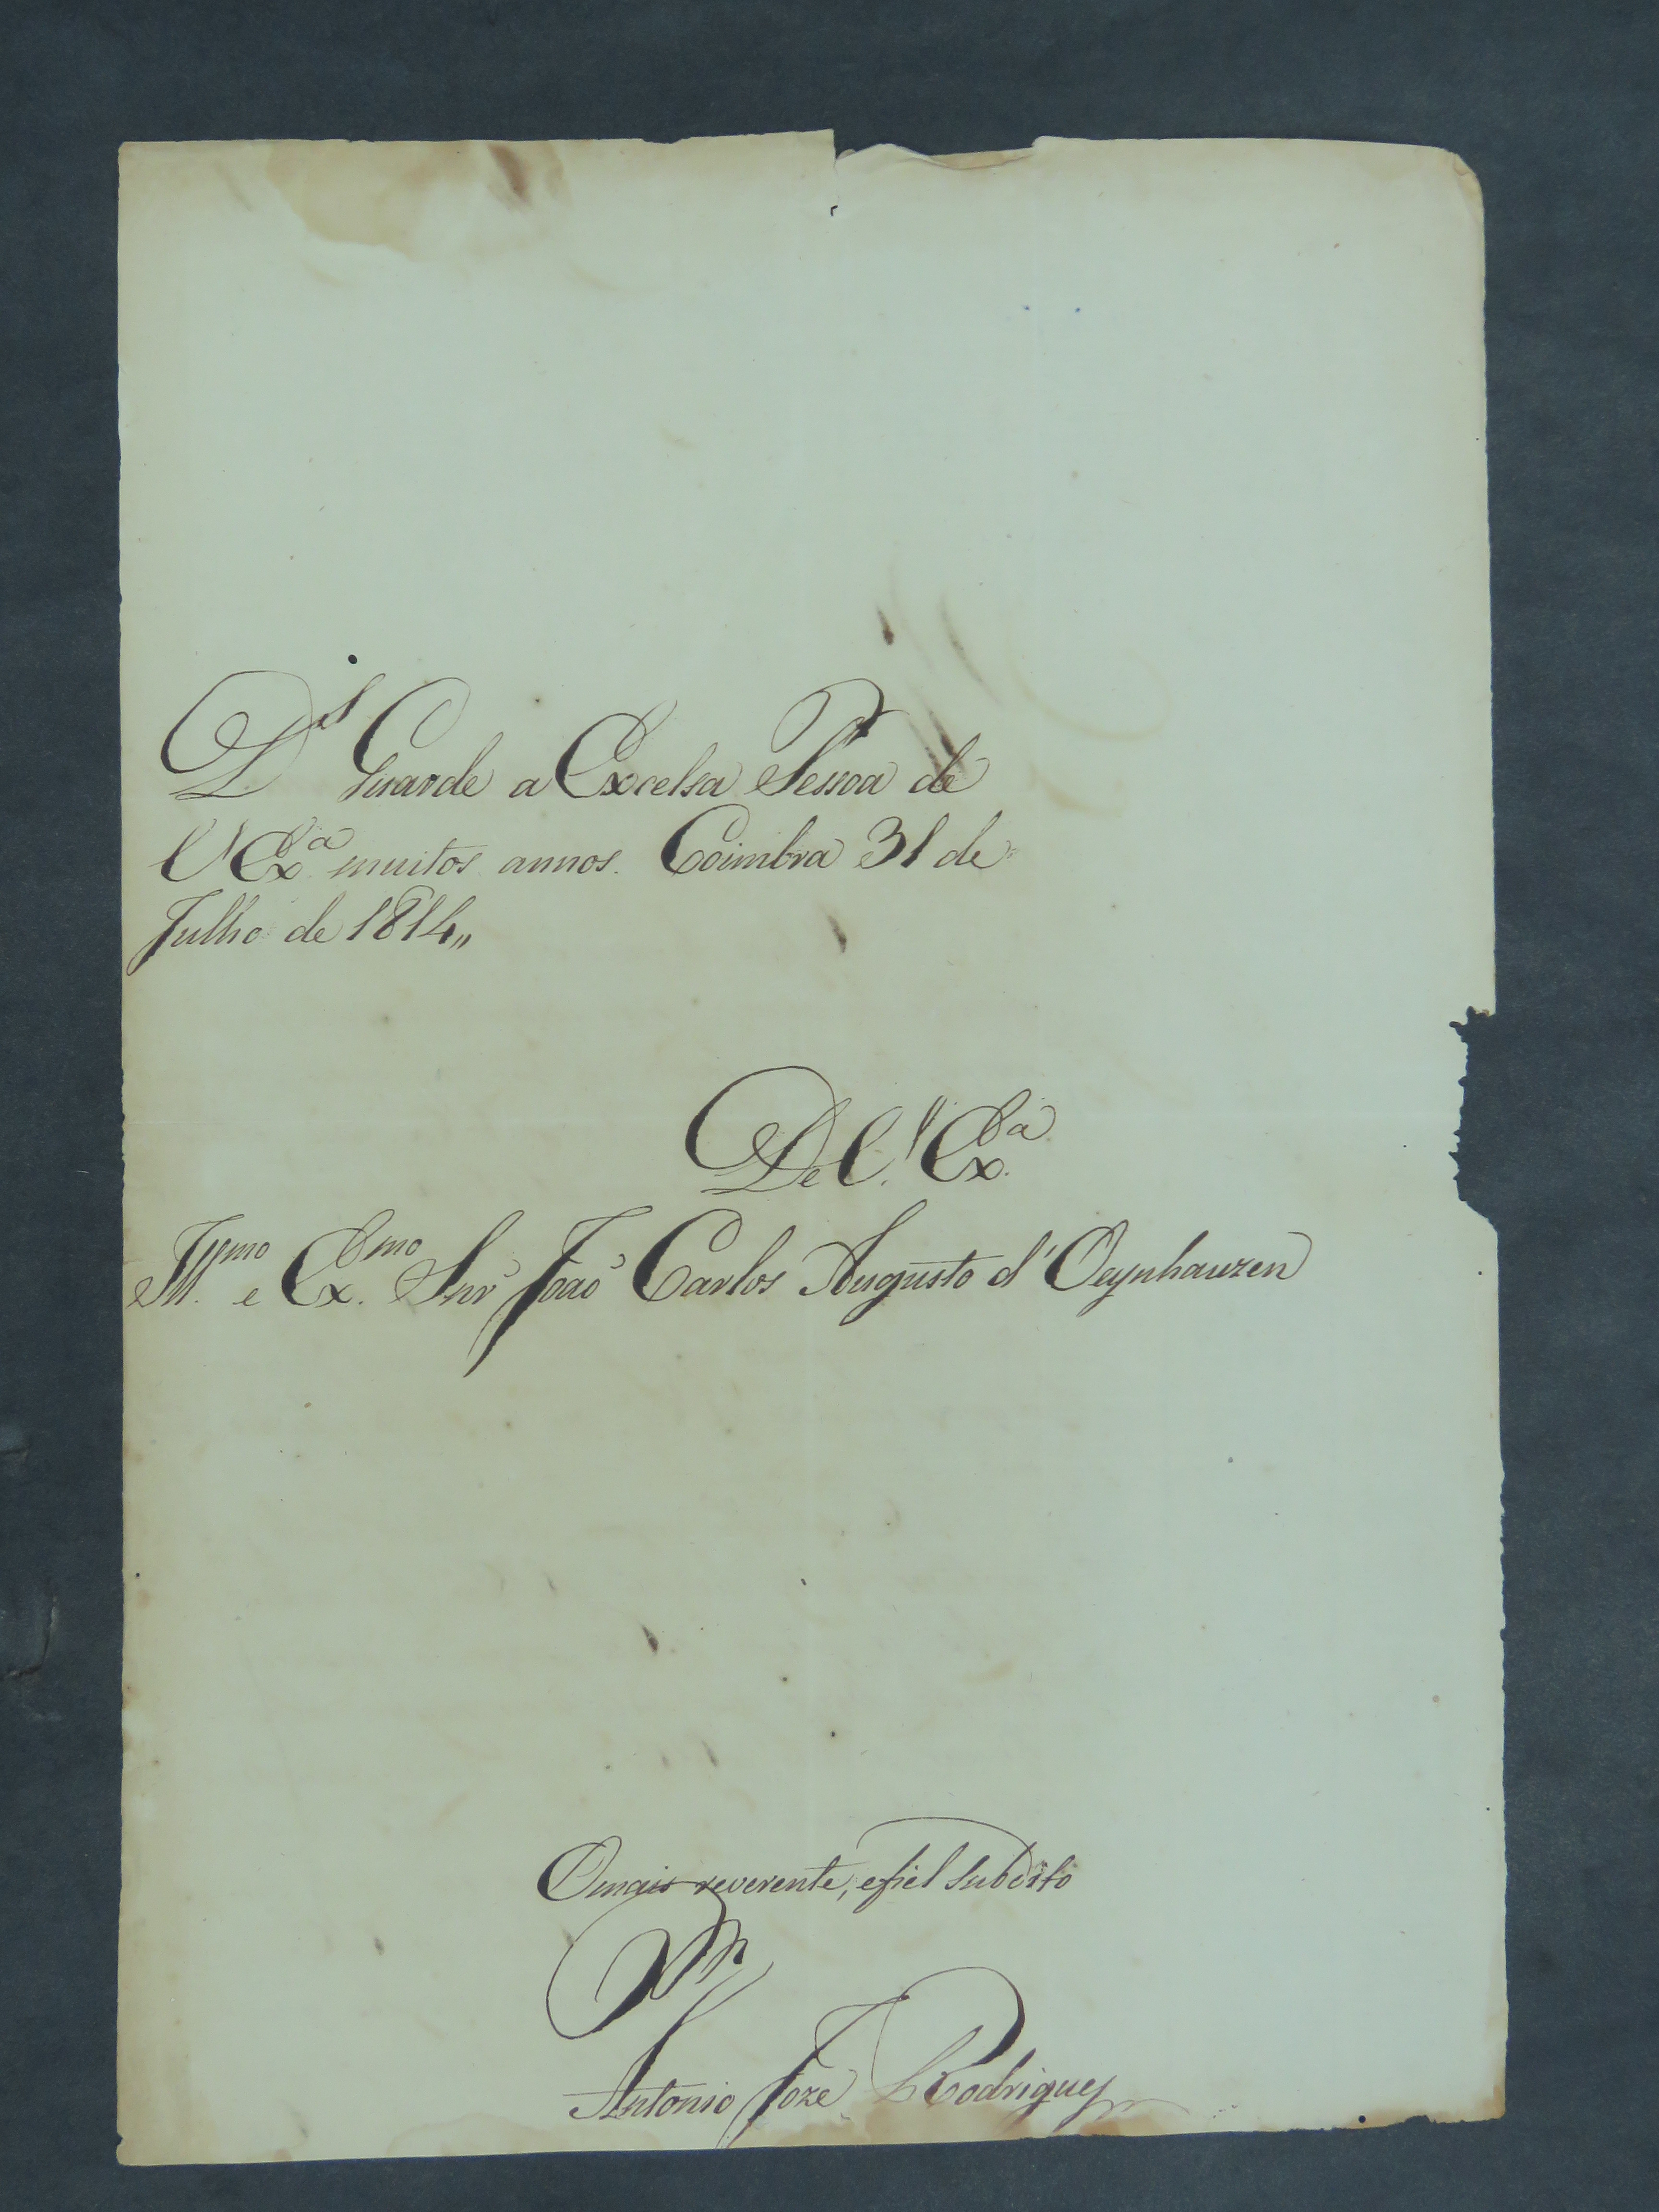 D.s Guarde a Excelsa Pessoa de
V Ex.a muitos annos. Coimbra 31 de
Julho de 1814,,
De V. Ex.a
Ill.mo e Ex.mo Snr Joaõ Carlos Augusto d'Oeynhauzen
O mais reverente, e fiel Subdito
Antonio Joze Rodrigues